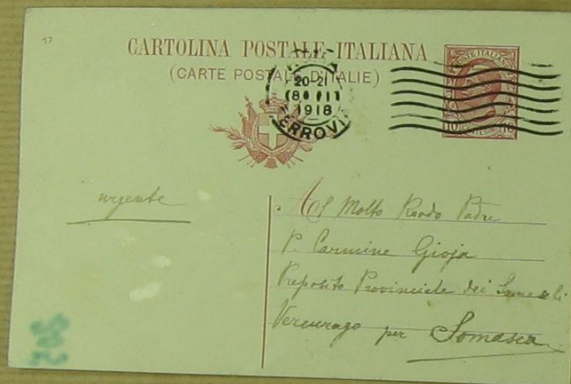 17
CARTOLINA POSTALE ITALIANA
(CARTE POSTALE D'ITALIE)
20-21
1918
FERROVI
POSTE ITALIANE
10 10
urgente
Al Molto Revdo Padre
P. Carmine Gioja
Preposito Provinciale dei Somaschi
Vercurago per Somasca
205